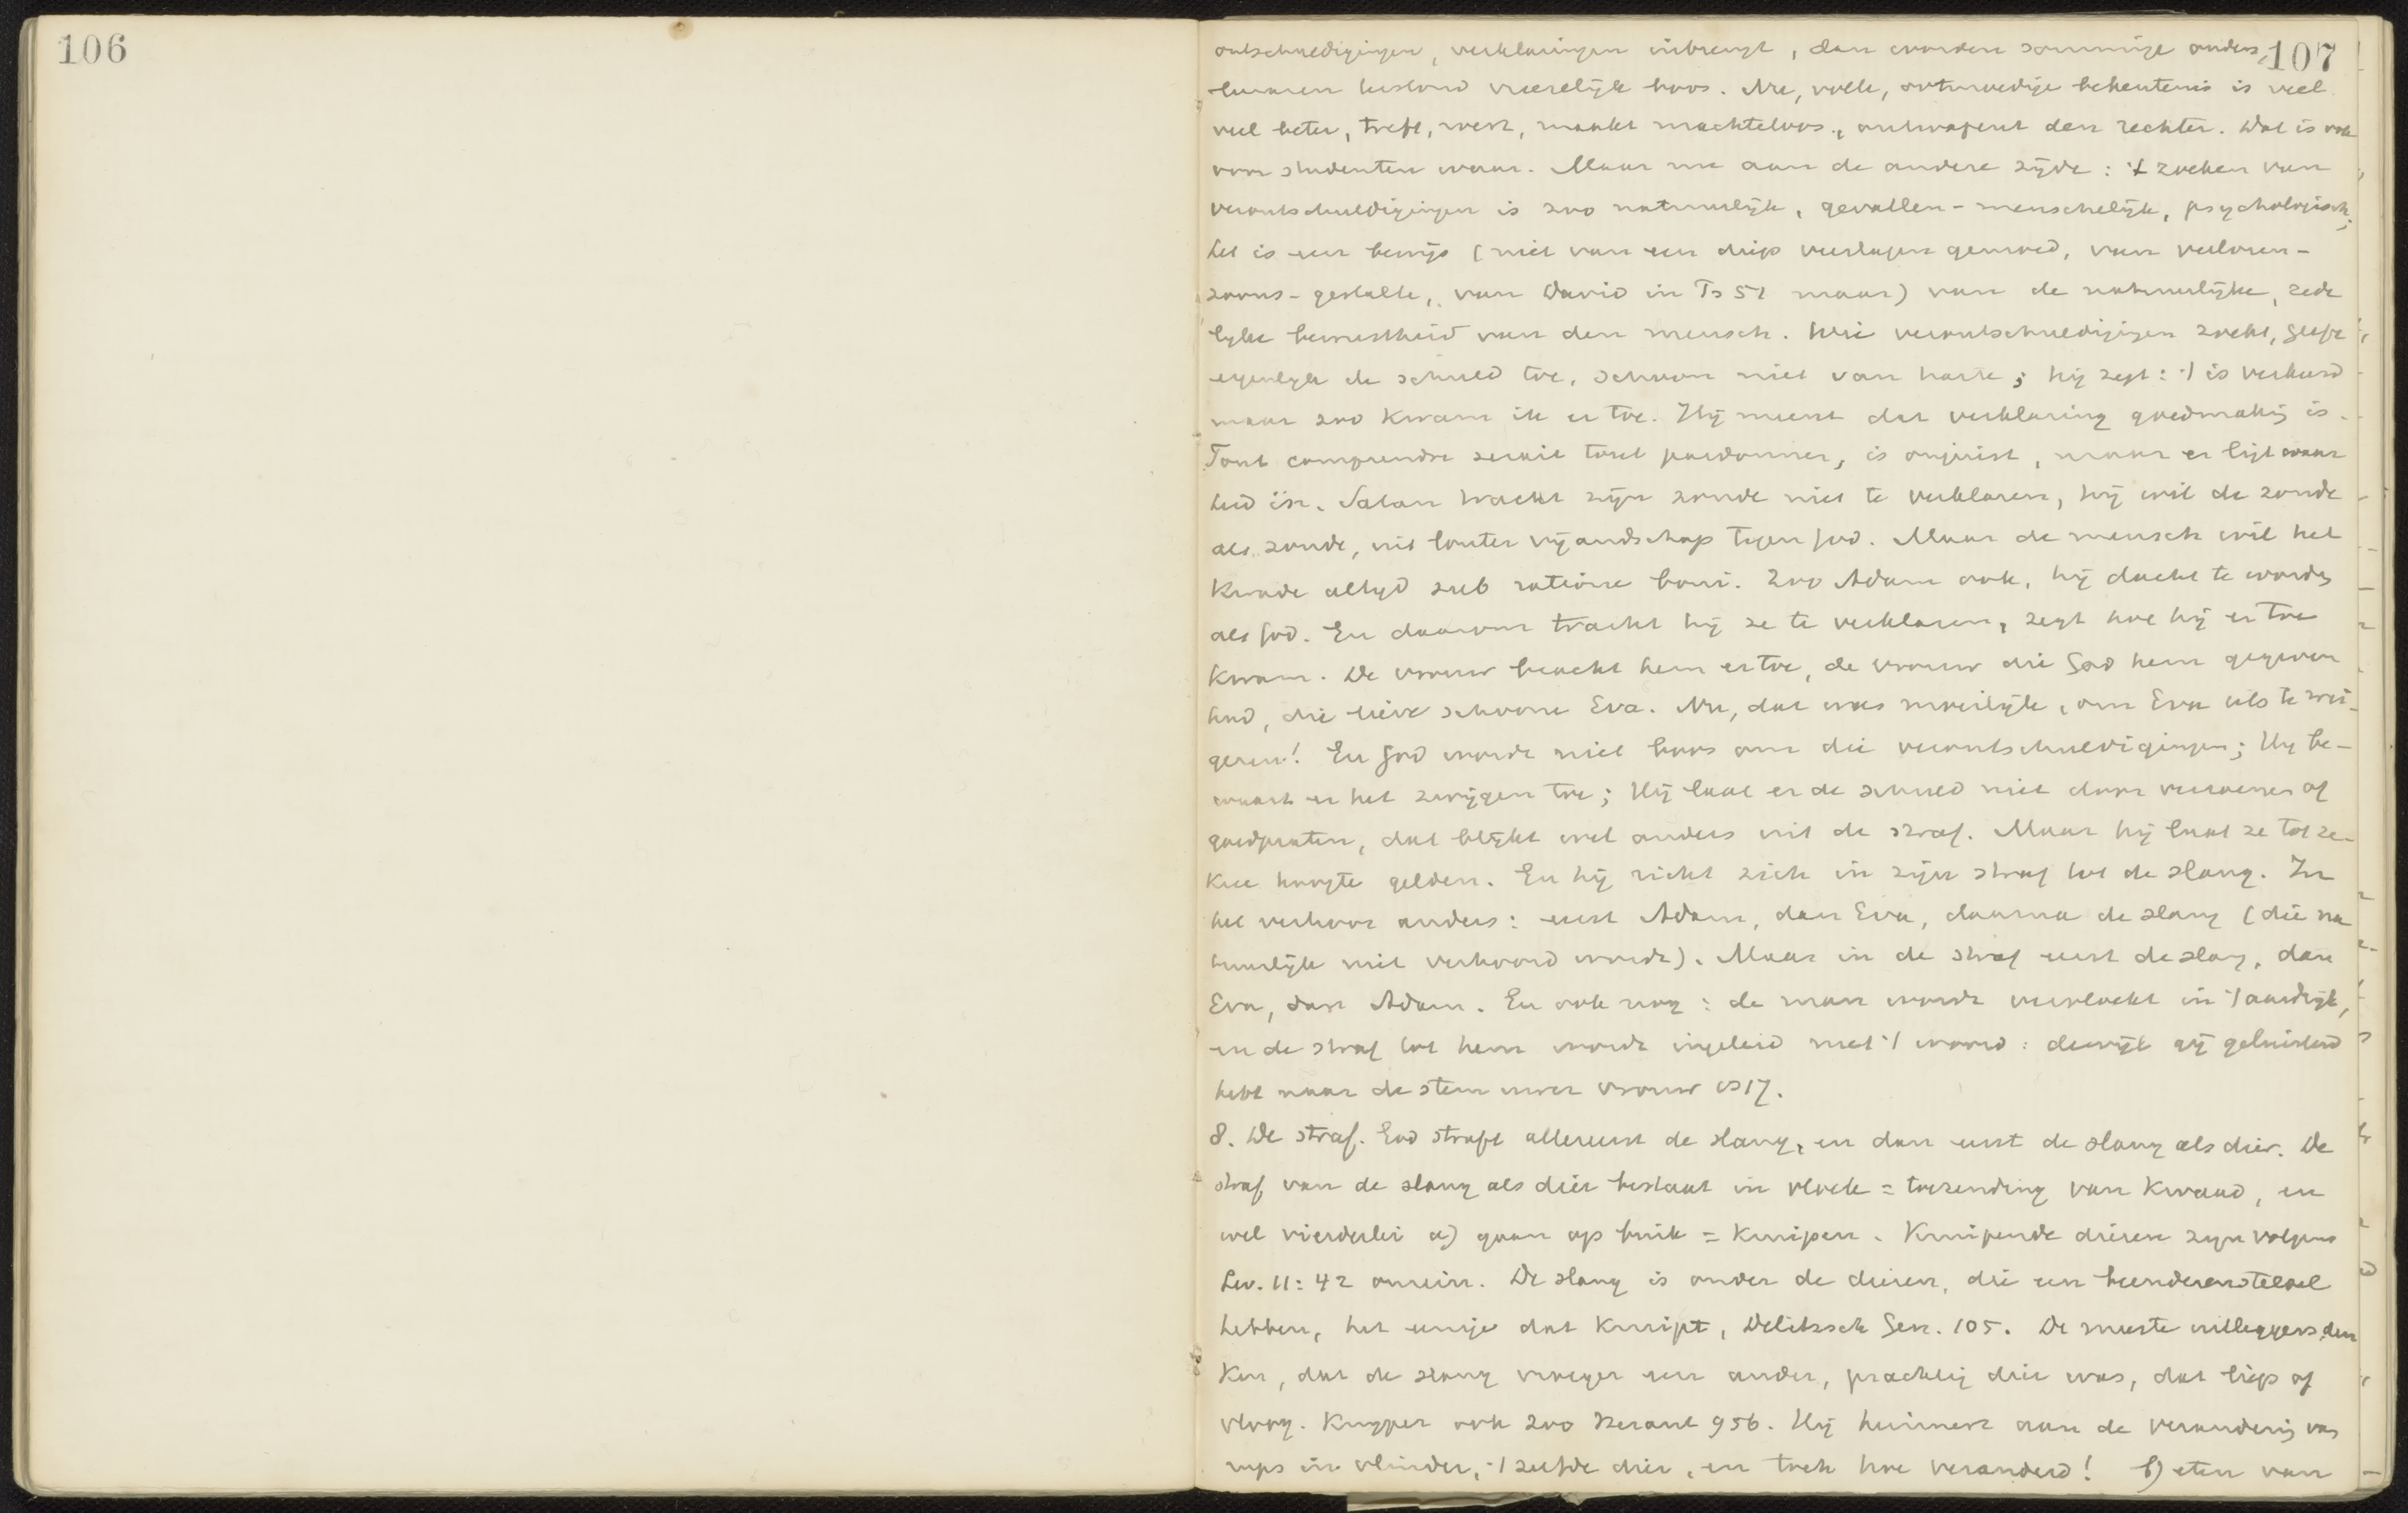 106
107
ontschuldigingen, verklaringen inbrengt, dan worden sommige ouders,
kunnen leeslond vreeselijk boos. Nu, volle, ootmoedige bekentenis is veel
veel beter, treft, werk, maakt machteloos, ontwapent den rechter. Dat is ook
voor studenten waar. Maar nu aan de andere zijde: 't zoeken van
verontschuldigingen is zoo natuurlijk, gevallen-menschelijk, psychologisch;
het is een bewijs (niet van een diep verslagen gemoed, van verloren-
zoons-gestalte, van David in Ps 51 maar) van de natuurlijke, zede
lyke bewustheid van den mensch. Wie verontschuldigingen zoekt, geeft
eigenlyk de schuld toe, schoon niet van harte; hij zegt: 't is verkeerd
maar zoo kwam ik er toe. Hij meent dat verklaring goedmaking is.
Tout comprendre serait tout pardonner, is onjuist, maar er ligt waar
heid in. Satan tracht zijn zonde niet te verklaren, hij wil de zonde
als zonde, uit louter vijandschap tegen God. Maar de mensch wil het
kwade altyd sub ratione boni. Zoo Adam ook, hij dacht te worden
als God. En daarom tracht hij ze te verklaren, zegt hoe hij er toe
kwam. De vrouw bracht hem er toe, de vrouw die God hem gegeven
had, die lieve schoone Eva. Nu, dat was moeilijk, om Eva iets te wei-
geren! En God wordt niet boos om die verontschuldigingen; Hy be-
waart er het zwijgen toe; Hij laat er de schuld niet door verzoenen of
goedpraten, dat blijkt wel anders uit de straf. Maar hij laat ze tot ze-
kere hoogte gelden. En hij richt zich in zijn straf tot de slang. In
het verhoor anders: eerst Adam, dan Eva, daarna de slang (die na
tuurlijk niet verhoord wordt). Maar in de straf eerst de slang, dan
Eva, dan Adam. En ook nog: de man wordt vervloekt in 't aardrijk,
en de straf tot hem wordt ingeleid met 't woord: dewijl gij geluisterd
hebt naar de stem uwer vrouw vs 17.
8. De straf. God straft allereerst de slang, en dan eerst de slang als dier. De
straf van de slang als dier bestaat in vloek = toezending van kwaad, en
wel vierderlei a) gaan op buik = kruipen. Kruipende dieren zijn volgens
Lev. 11:42 onrein. De slang is onder de dieren, die een beenderenstelsel
hebben, het eenige dat kruipt, Delitzsch Gen. 105. De meeste uitleggers den
ken, dat de slang vroeger een ander, prachtig dier was, dat liep of
vloog. Kuyper ook zoo Heraut 956. Hij herinnert aan de verandering van
rups in vlinder, 't zelfde dier, en toch hoe veranderd! b) eten van